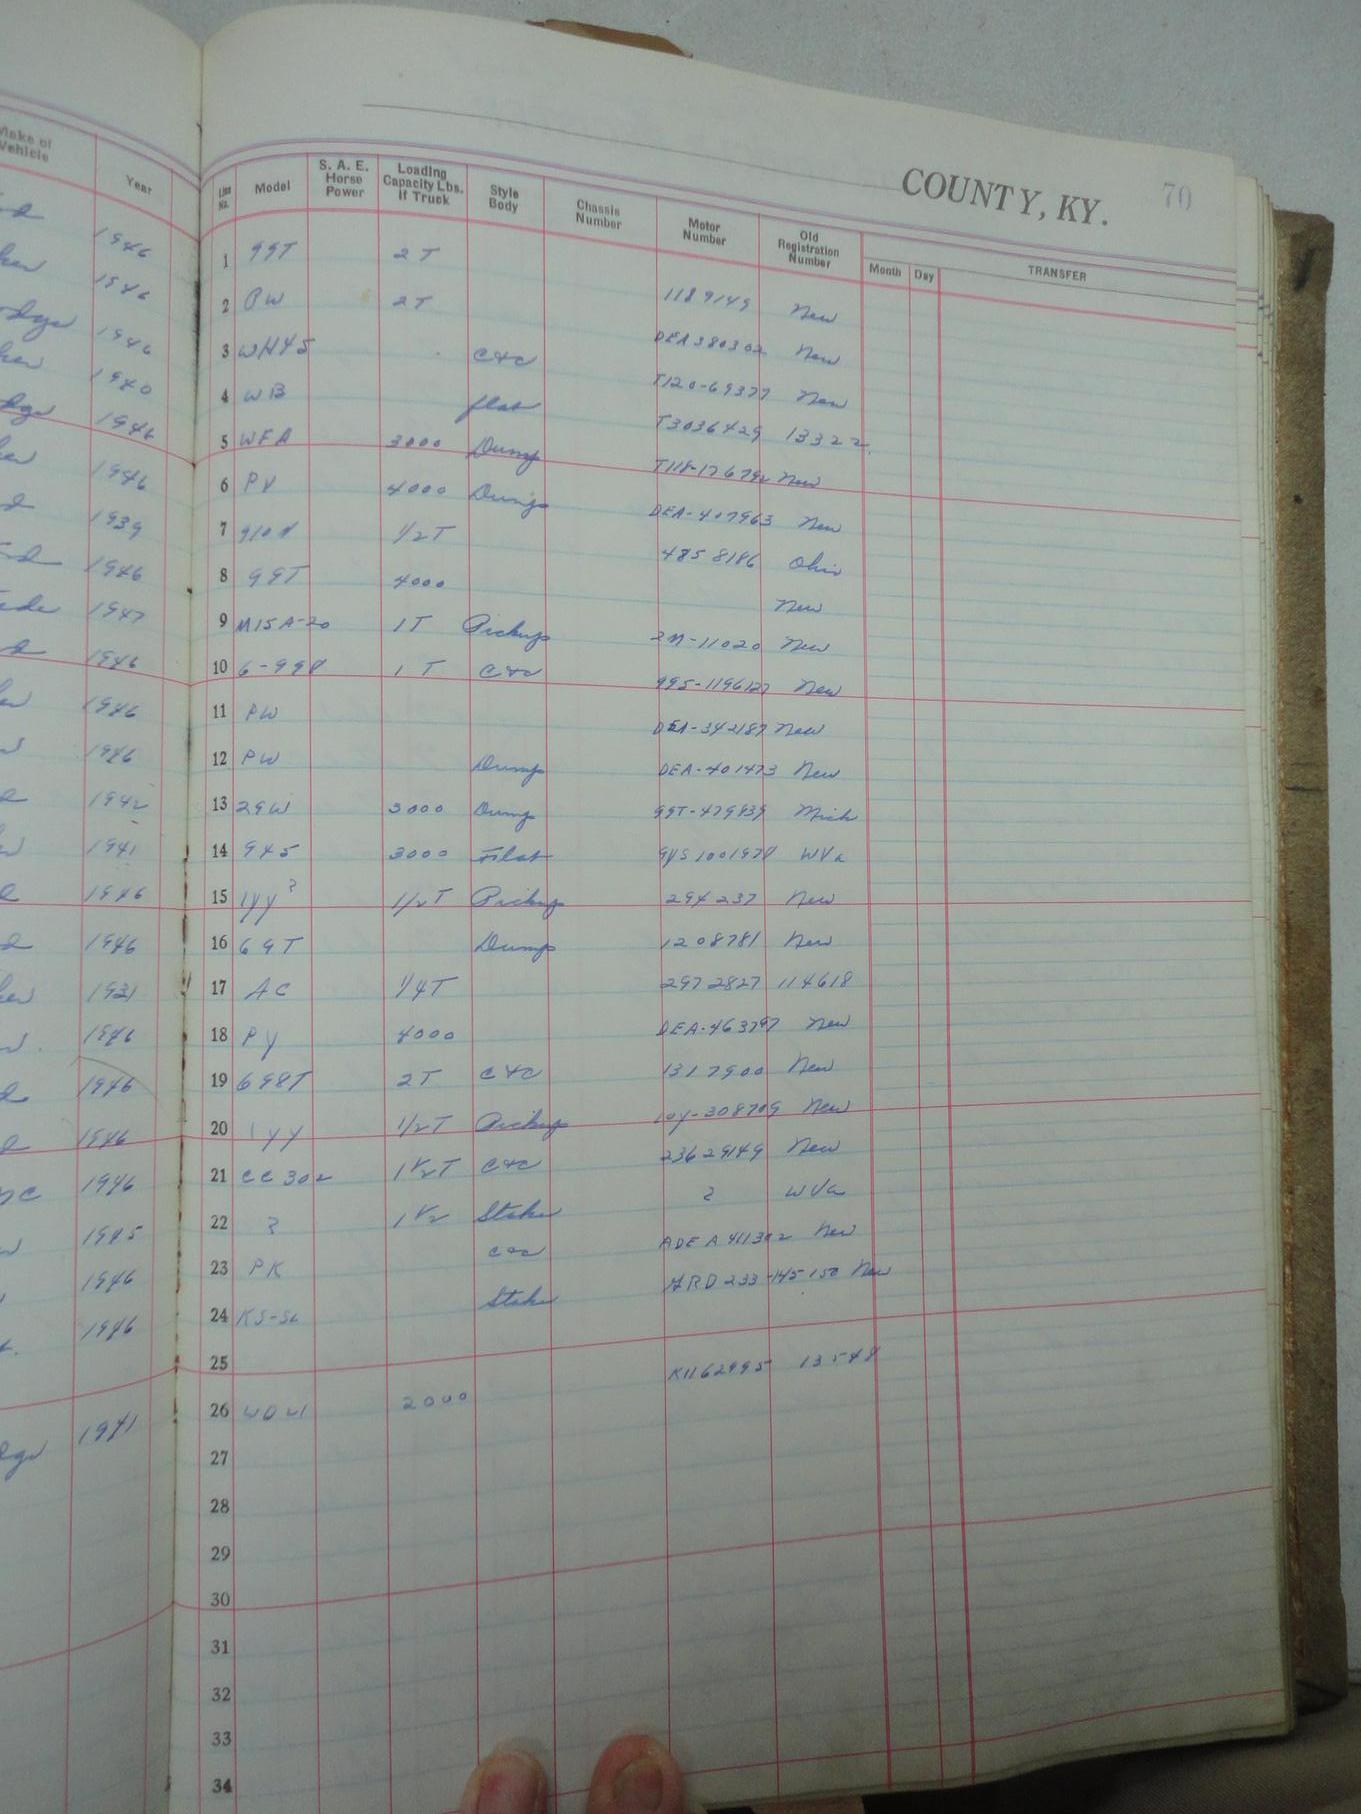 Make of Vehicle Year Line No. Model S. A. E. Horse Power Loading Capacity Lbs. if Truck Style Body Chassis Number Motor Number Old Registration Number Month Day TRANSFER
COUNTY, KY. 70
1946 1 99T 2 T 1189149 New
1946 2 PW 2T DEA380302 New
1946 3 WH45 C&C T120-69377 New
1940 4 WB flat T3036429 13322
1946 5 WFA 3000 Dump T118-176792 New
1946 6 PV 4000 Dump DEA-407963 New
1939 7 910Y 1/2T 4858186 Ohio
1946 8 99T 4000 New
1947 9 M15A-20 1T Pickup 2M-11020 New
1946 10 6-998 1 T C&C 995-1196127 New
1946 11 PW DEA-342187 New
1946 12 PW Dump DEA-401473 New
1942 13 29W 3000 Dump 99T-479839 Mich
1941 14 945 3000 Flat WVa
1946 15 1yy ? 1/2T Pickup 294237 New
1946 16 69T Dump 1208781 New
1931 17 AC 1/4T 2972827 114618
1946 18 Py 4000 DEA-463797 New
1946 19 698T 2T C&C 1317900 New
1946 20 1yy 1/2T Pickup 10y-308709 New
1946 21 CC 302 1 1/2T C&C 23629149 New
1945 22 ? 1 1/2 Stake ? WVa
1946 23 PK C&C ADEA 411302 New
1946 24 KS-5L Stake HRD 233-145-150 New
25
1941 26 2000 K1162995 13548
27
28
29
30
31
32
33
34